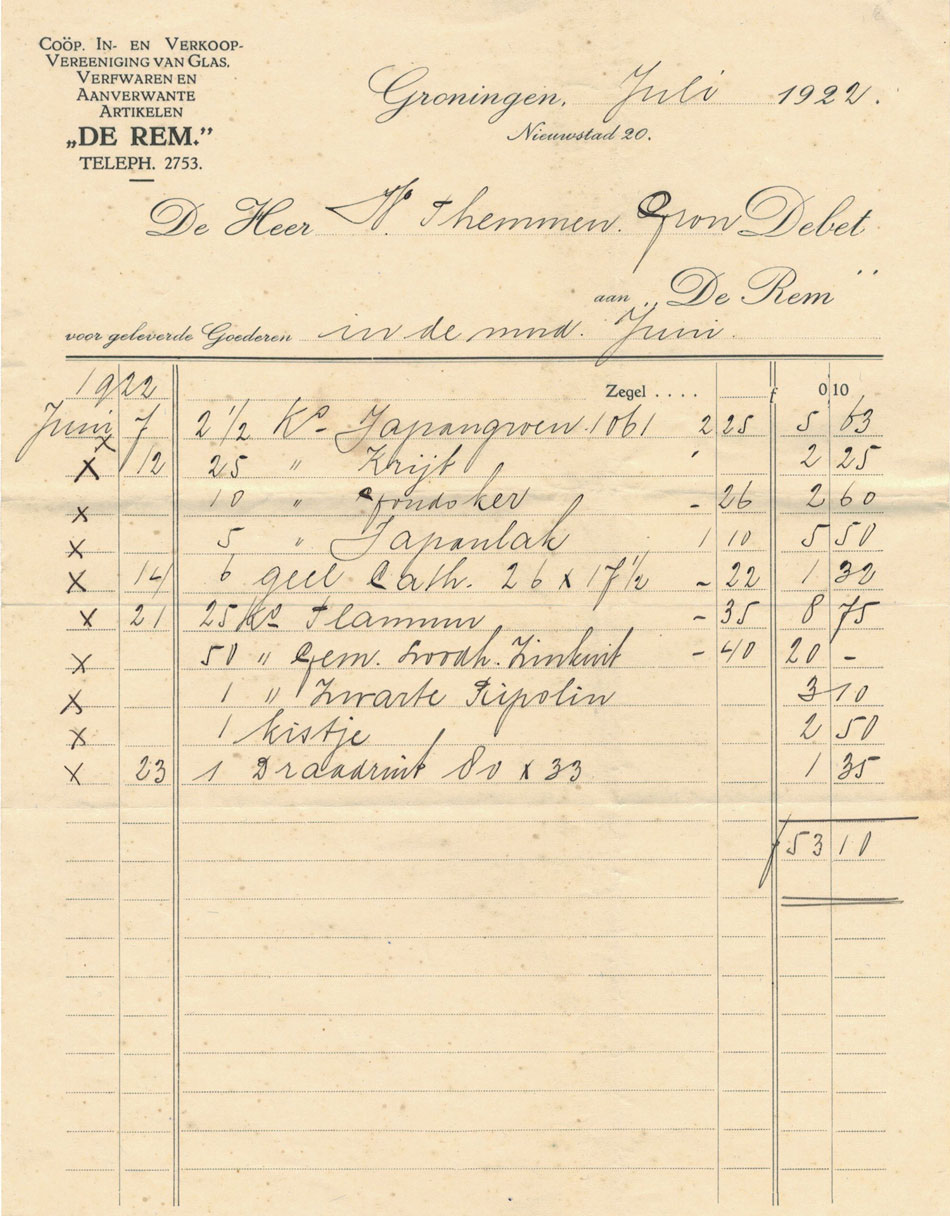 COÖP. IN- EN VERKOOP-
VEREENIGING VAN GLAS,
VERFWAREN EN
AANVERWANTE
ARTIKELEN
„DE REM.”
TELEPH. 2753.
Groningen, Juli 1922.
Nieuwstad 20.
De Heer W. Themmen. Gron Debet
aan „De Rem”
voor geleverde Goederen in de mnd. Juni.
1922 Zegel .... f 0 10
Juni 7 2 1/2 Ko Japangroen 1061 2 25 5 63
x x 12 25 " Krijt 2 25
x 10 " - 26 2 60
x 5 " Japanlak 1 10 5 50
x 14 6 geel Cath. 26 x 17 1/2 - 22 1 32
x 21 25 Ko - 35 8 75
x 50 " Gem. Zinkwit - 40 20 -
x 1 " Zwarte Ripolin 3 10
x 1 kistje 2 50
x 23 1 Draadruit 80 x 33 1 35
f 53 10